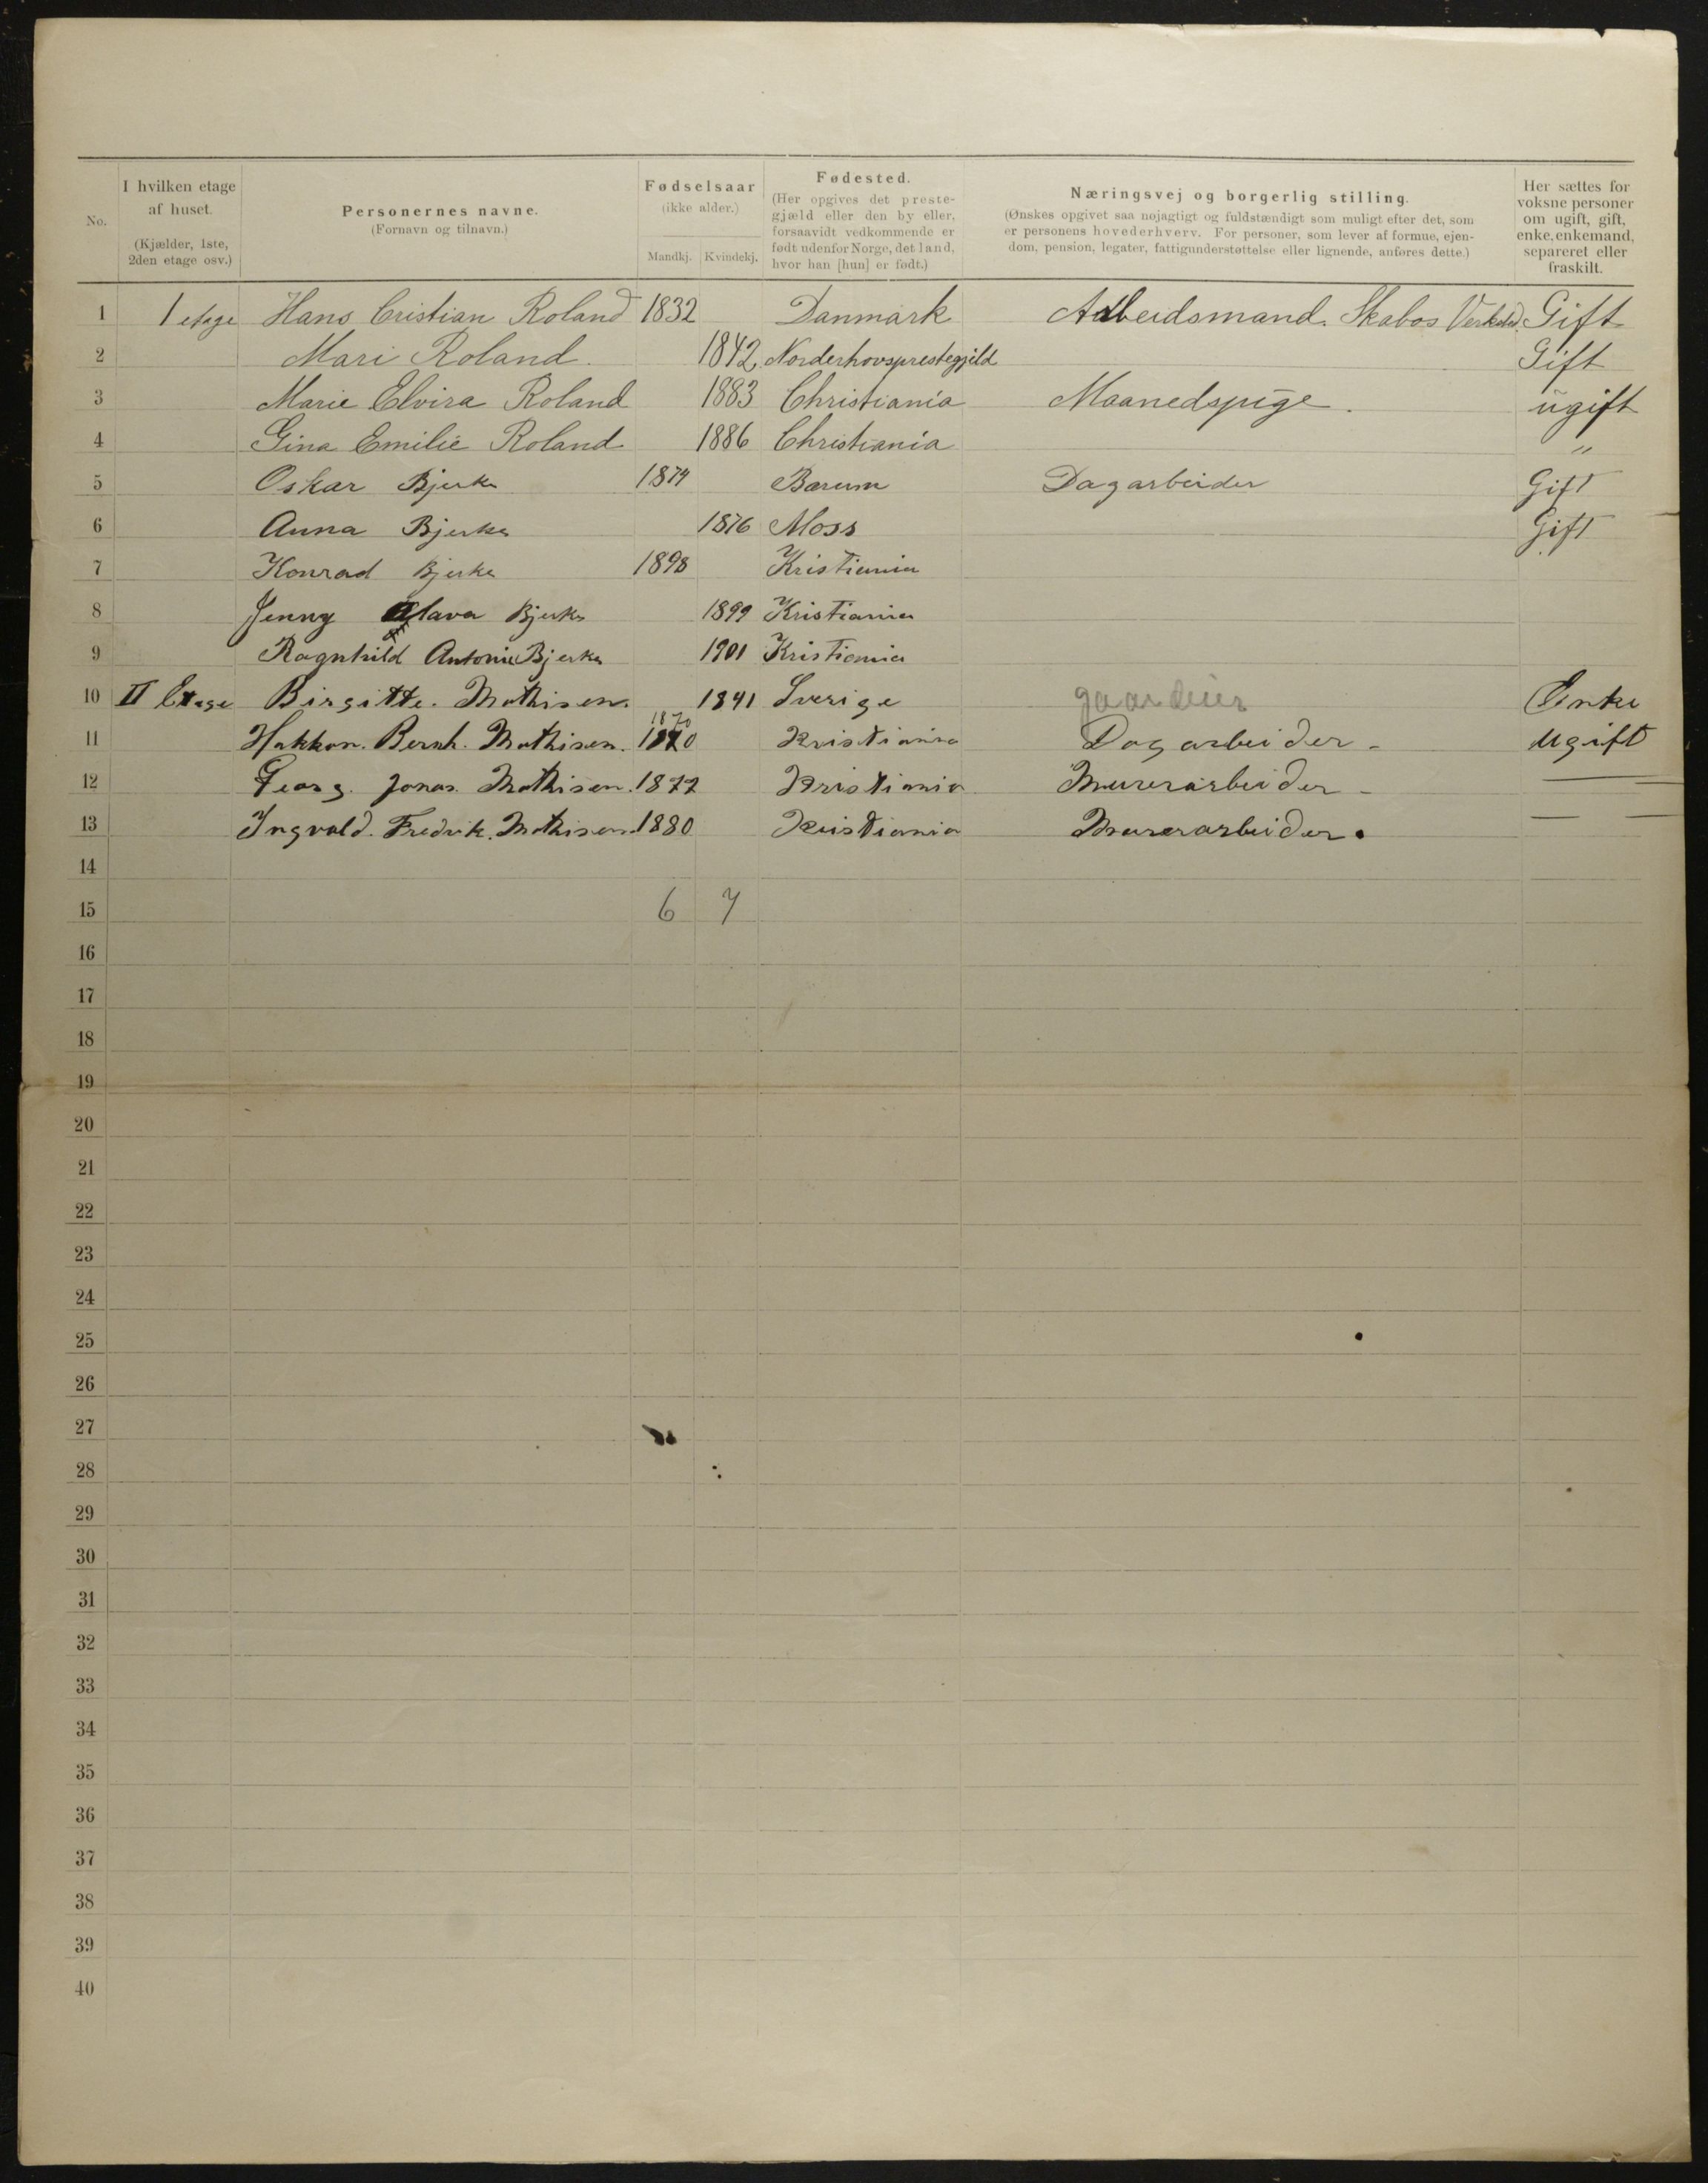 No.
I hvilken etage
af huset.
(Kjælder, 1ste,
2den etage osv.)
Personernes navne.
(Fornavn og tilnavn.)
Fødselsaar
(ikke alder.)
Mandkj. Kvindekj.
Fødested.
(Her opgives det preste-
gjæld eller den by eller,
forsaavidt vedkommende er
født udenfor Norge, det land,
hvor han [hun] er født.)
Næringsvej og borgerlig stilling.
(Ønskes opgivet saa nøjagtigt og fuldstændigt som muligt efter det, som
er personens hovederhverv. For personer, som lever af formue, ejen-
dom, pension, legater, fattigunderstøttelse eller lignende, anføres dette.)
Her sættes for
voksne personer
om ugift, gift,
enke, enkemand,
separeret eller
fraskilt.
1 1 etage Hans Cristian Roland 1832 Danmark Arbeidsmand. Skabos Gift
2 Mari Roland. 1842 Norderhovsprestegjeld Gift
3 Marie Elvira Roland 1883 Christiania Maanedspige. ugift
4 Gina Emilie Roland 1886 Christiania "
5 Oskar Bjerke 1874 Barum Dagarbeider Gift
6 Anna Bjerke 1876 Moss Gift
7 Konrad Bjerke 1898 Kristiania
8 Jenny Bjerke 1899 Kristiania
9 Ragnhild Antonie Bjerke 1901 Kristiania
10 II Etage Birgitte. Mathisen. 1841 Sverige gaardeier Enke
11 Hakkon. Bernh. Mathisen. 1870 1870 Kristiania Dagarbeider - ugift
12 Georg. Jonas. Mathisen. 1877 Kristiania Murerarbeider - —
13 Ingvald. Fredrik. Mathisen 1880 Kristiania Murerarbeider. — —
14
15 6 7
16
17
18
19
20
21
22
23
24
25
26
27
28
29
30
31
32
33
34
35
36
37
38
39
40